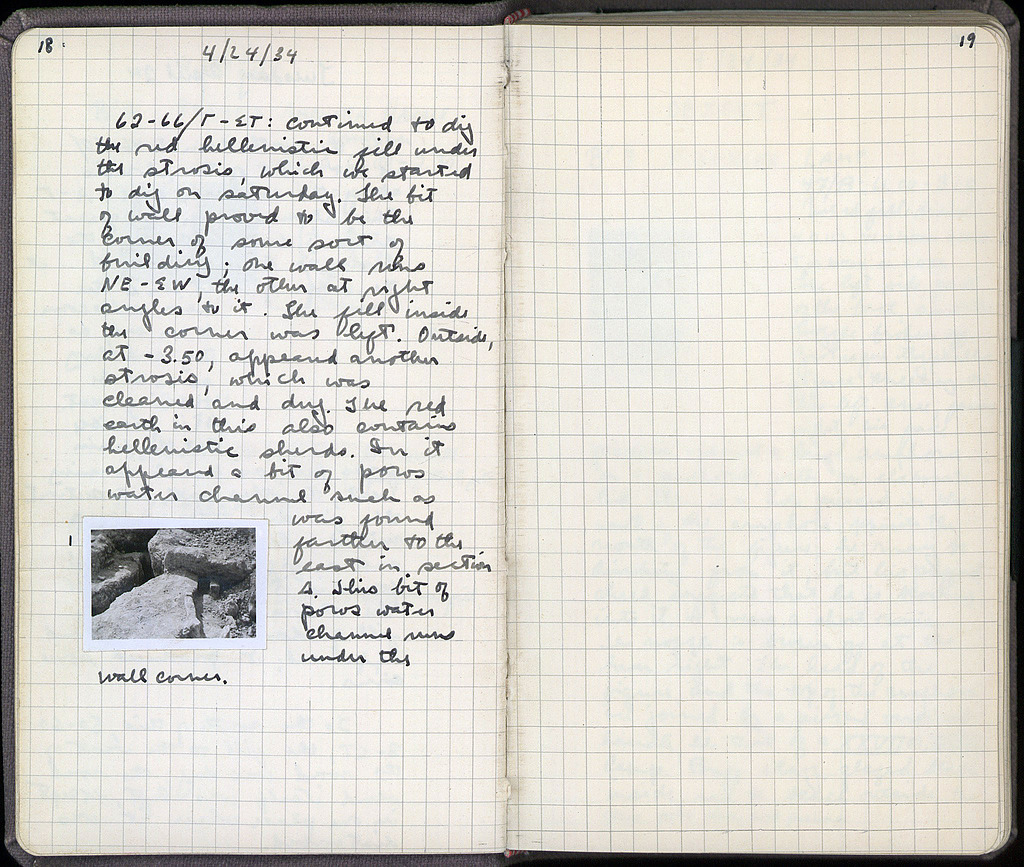 18
4/24/34
62-66/Γ-ΣΤ: continued to dig
the red hellenistic fill under
the strosis, which we started
to dig on saturday. The bit
of wall proved to be the
corner of some sort of
building; one wall runs
NE-SW, the other at right
angles to it. The fill inside
the corner was left. Outside,
at -3.50, appeared another
strosis, which was
cleaned and dug. The red
earth in this also contains
hellenistic sherds. In it
appeared a bit of poros
water channel such as
was found
farther to the
east in section
Δ. This bit of
poros water
channel runs
under the
wall corner.
1
19